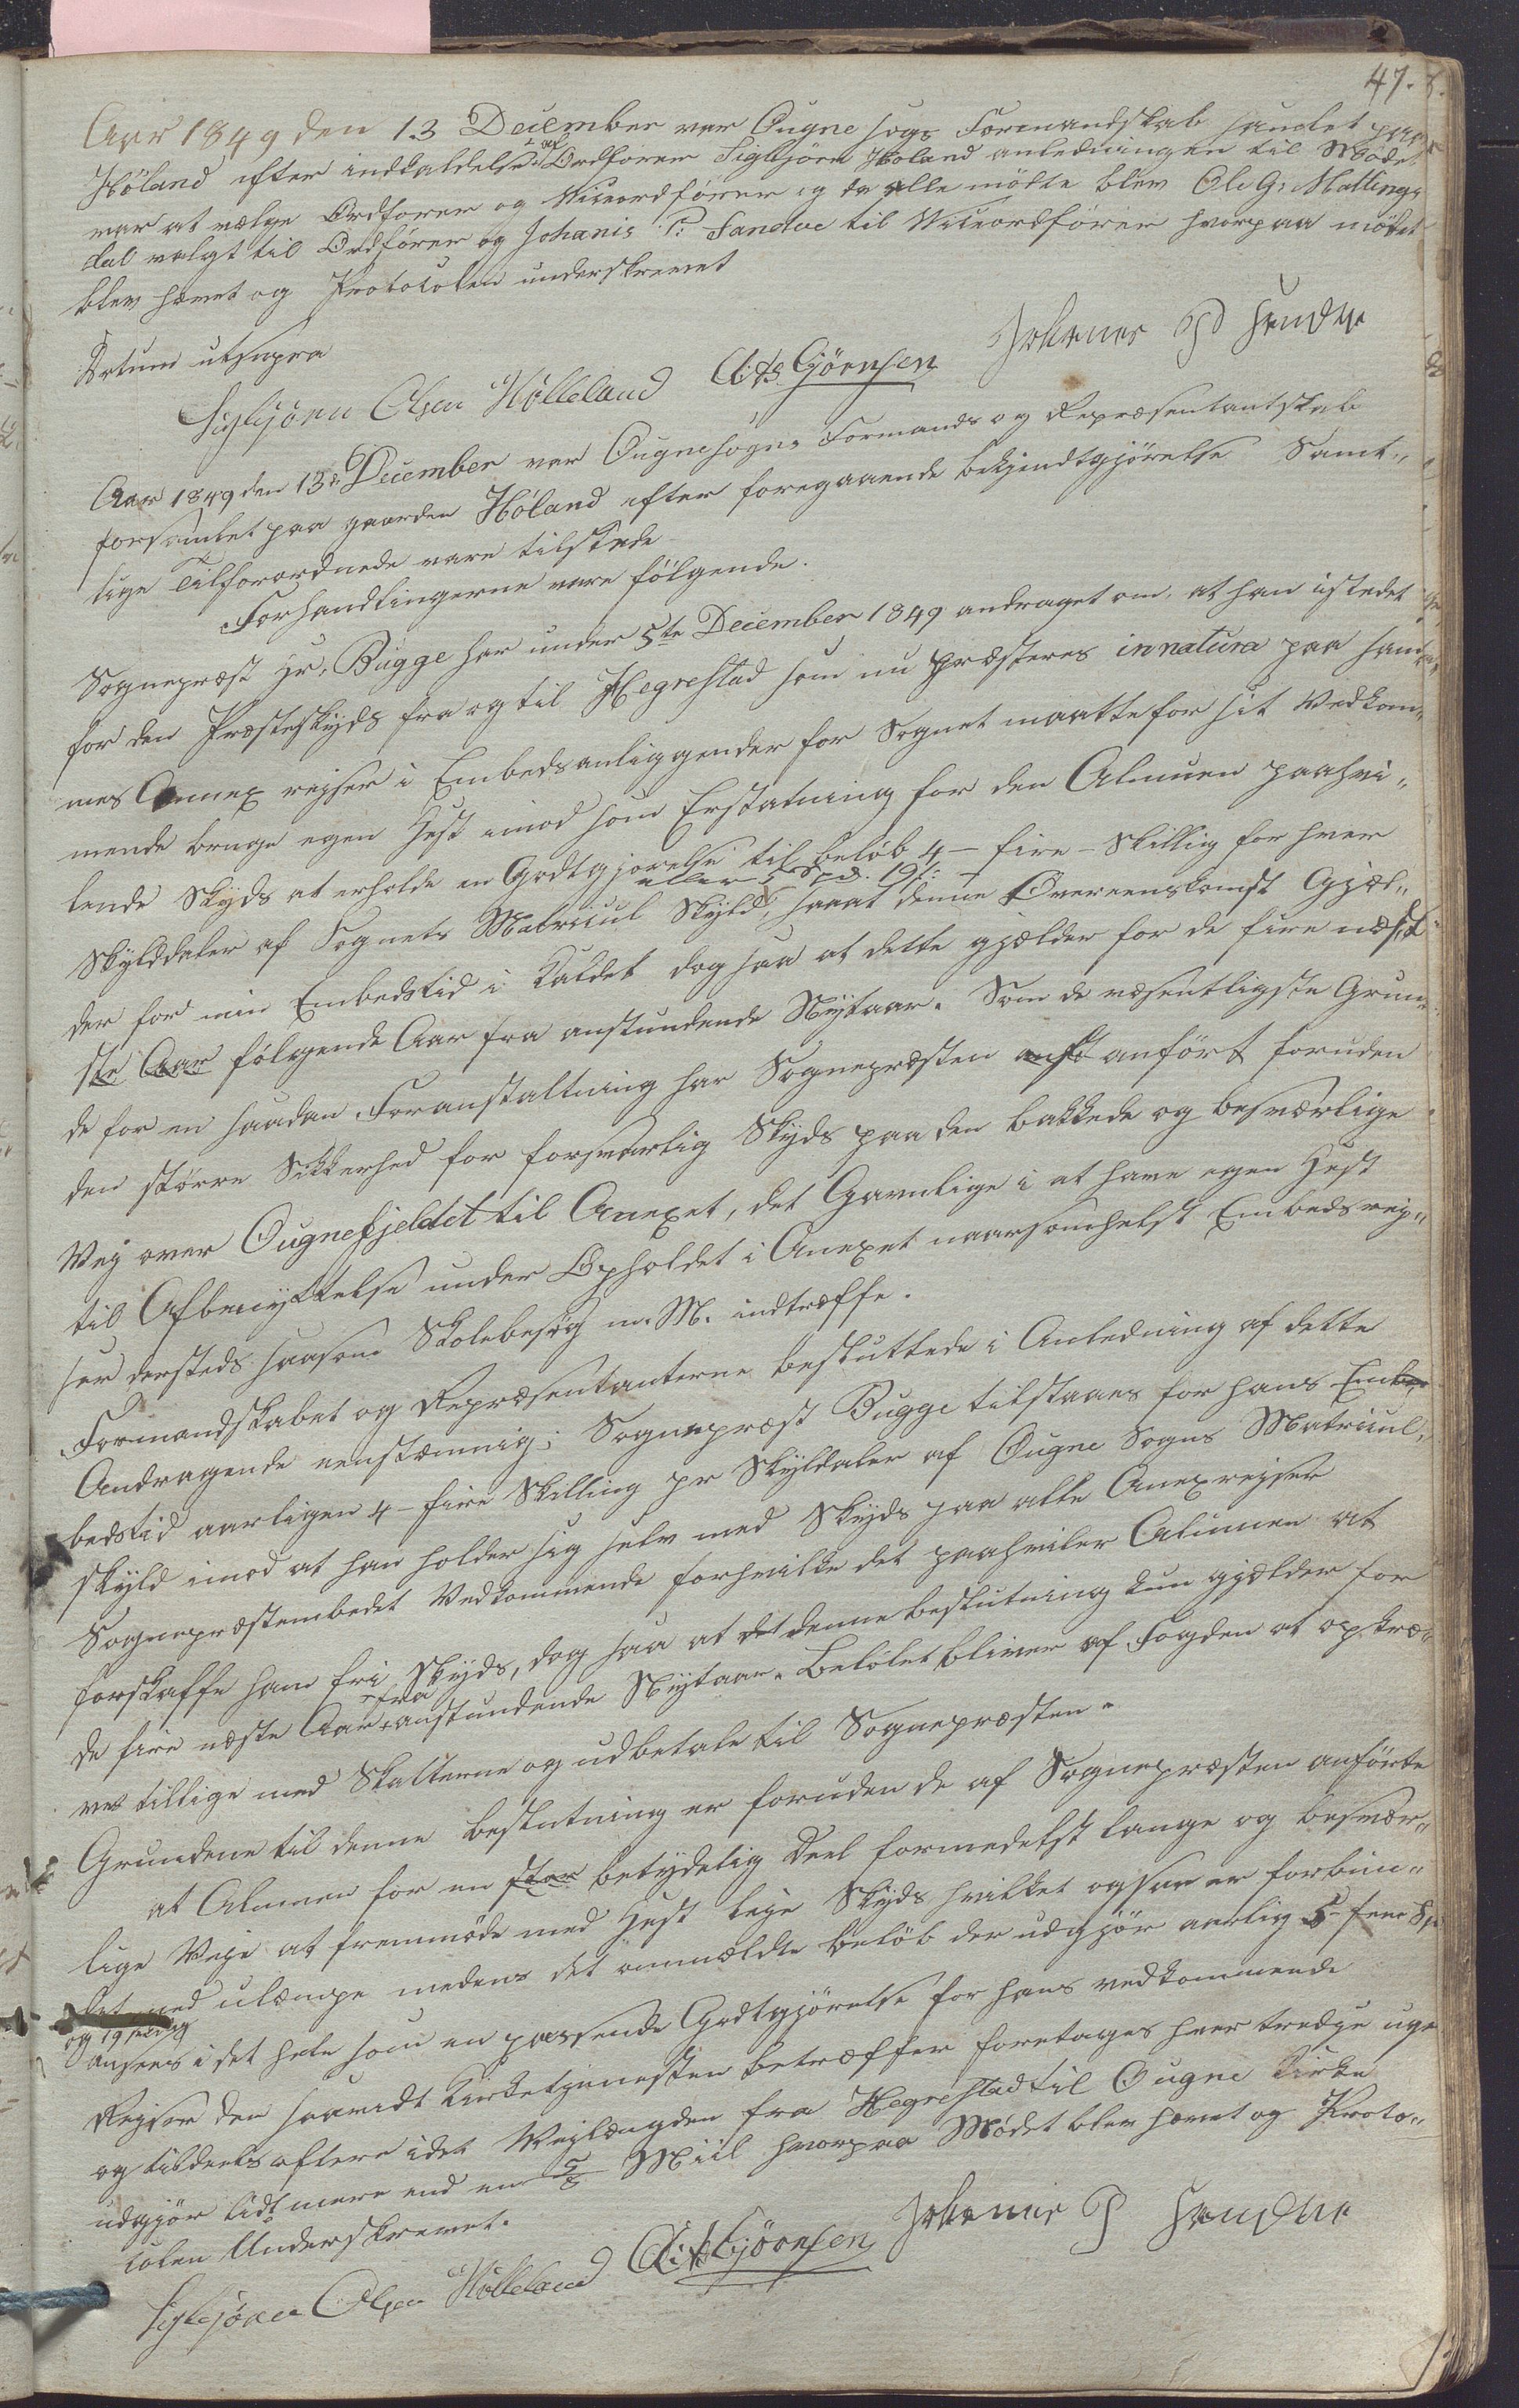 47.
Aar 1849 den 13 December var Ougne sogs Formandskab samlet paa
Höland efter indkaldelse af Ordförer Sigbjörn Höland anledningen til Mödet
var at vælge Ordförer og Viceordförer og da alle mödte blev Ole G: Mattings
dal valgt til Ordförer og Johanis P: Sandve til Viceordförer hvorpaa mödet
blev hævet og Protocolen underskrevet
Datum utsupra
Sigbjörn Olsen Hölleland Johanes P Sandve
Aar 1849 den 13de December var Ougne sogns Formands og Repræsentantskab
forsamlet paa gaarden Höland efter foregaaende bekjendtgjörelse Samt„
lige Tilforordnede vare tilstede
Forhandlingerne vare fölgende.
Sognepræst Hr: Bugge har under 5te December 1849 andraget om, at han istedet
for den Præsteskyds fra og til Hegrestad som nu præsteres in natura paa sam
mes Annex rejser i Embedsanliggender for Sognet maatte for sit Vedkom„
mende bruge egen Hest imod som Erstatning for den Almuen paahvi„
lende Skyds at erholde en Godtgjörelse til beløb 4 – fire – Skillig for hver
eller 5 Spd. 19 s:
Skylddaler af Sognets Matricul Skyld, saaat denne Overeenskomst Gjæl„
der for min Embedstid i Kaldet dog saa at dette gjælder for de fire næst
ste Aar fölgende Aar fra anstundende Nytaar. Som de væsentligste Grun„
de for en saadan Foranstaltning har Sognepræsten anfört foruden
den större Sikkerhed for forsvarlig Skyds paa den bakkede og besværlige
Vej over Ougnefjeldet til Anexet, det Gavnlige i at have egen Hest
til Afbenyttelse under Opholdet i Anexet naarsomhelst Embedsrej„
ser dersteds saasom Skolebesög m. M. indtræffe.
Formandskabet og Repræsentanterne besluttede i Anledning af dette
Andragende eenstemmig; Sognepræst Bugge tilstaaes for hans Em
bedstid aarligen 4 – fire Skilling pr Skyldaler af Ougne Sogns Matricul„
skyld imod at han holder sig selv med Skyds paa alle Anexrejser
Sognepræstembedet Vedkommende forhvilke det paahviler Almuen at
forskaffe ham fri Skyds, dog saa at det denne beslutning kun gjælder for
de fire næste Aar fra anstundende Nytaar. Belöbet bliver af Fogden at opkræ„
ves tillige med Skatterne og udbetale til Sognepræsten.
Grundene til denne beslutning er foruden de af Sognepræsten anförte
at Almuen for en stor betydelig Deel formedelst lange og besvær„
lige Veje at fremmöde med Hest leje Skyds hvilket ogsaa er forbun„
det med ulæmpe medens det anmældte belöb der udgjör aarlig 5 – fem Sp
og 19 skillig
ansees i det hele som en passende Godtgjörelse for hans vedkommende
Rejser den saavidt Kirketjenesten betræffer foretages hver tredje uge
og tildeels oftere idet Vejlængden fra Hegrestad til Ougne Kirke
udgjör lidt mere end en 5/8 Miil hvorpaa Mödet blev hævet og Proto„
colen Underskrevet.
Sigbjörn Olsen Hölleland Johannis P Sandve